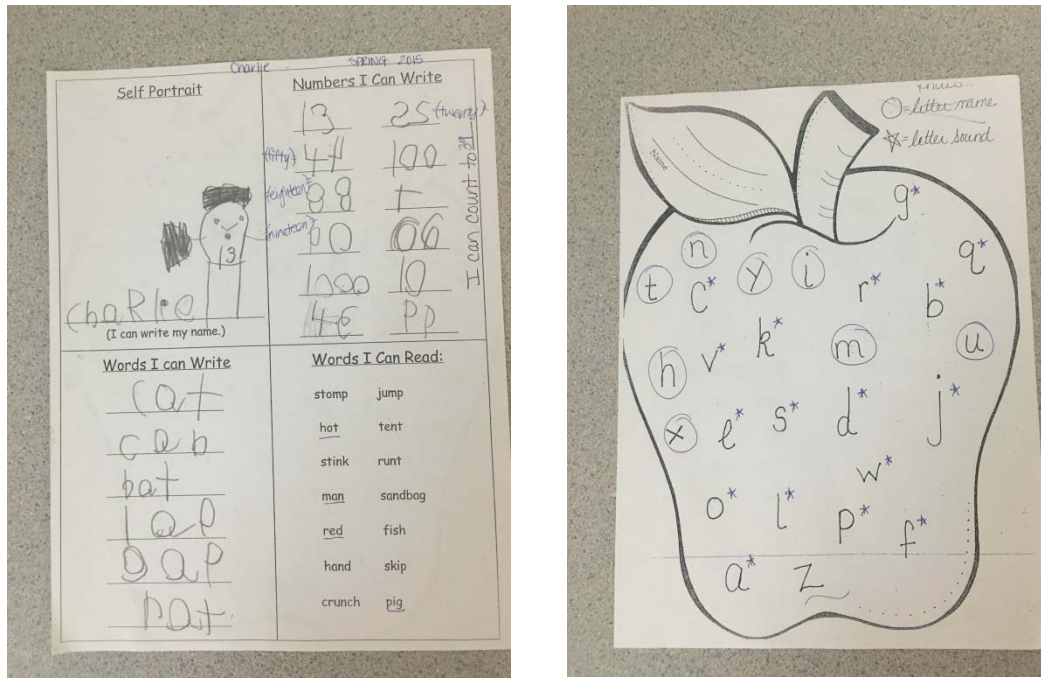 Charlie SPRING 2015
Self Portrait
13
ChaRlie
(I can write my name.)
Numbers I Can Write
13 25 (twenty)
(fifty) 44 100
(eighteen) 88 t
(nineteen) 00 06
1000 10
46 PP
I can count to 39
Words I can Write
cat
cab
bat
lap
Dap
rat
Words I Can Read:
stomp jump
hot tent
stink runt
man sandbag
red fish
hand skip
crunch pig
Name
O = letter name
☆ = letter sound
g*
n q*
t c* y i r* b*
h v* k* m u
x e* s* d* j*
w*
o* l* p* f*
a* z